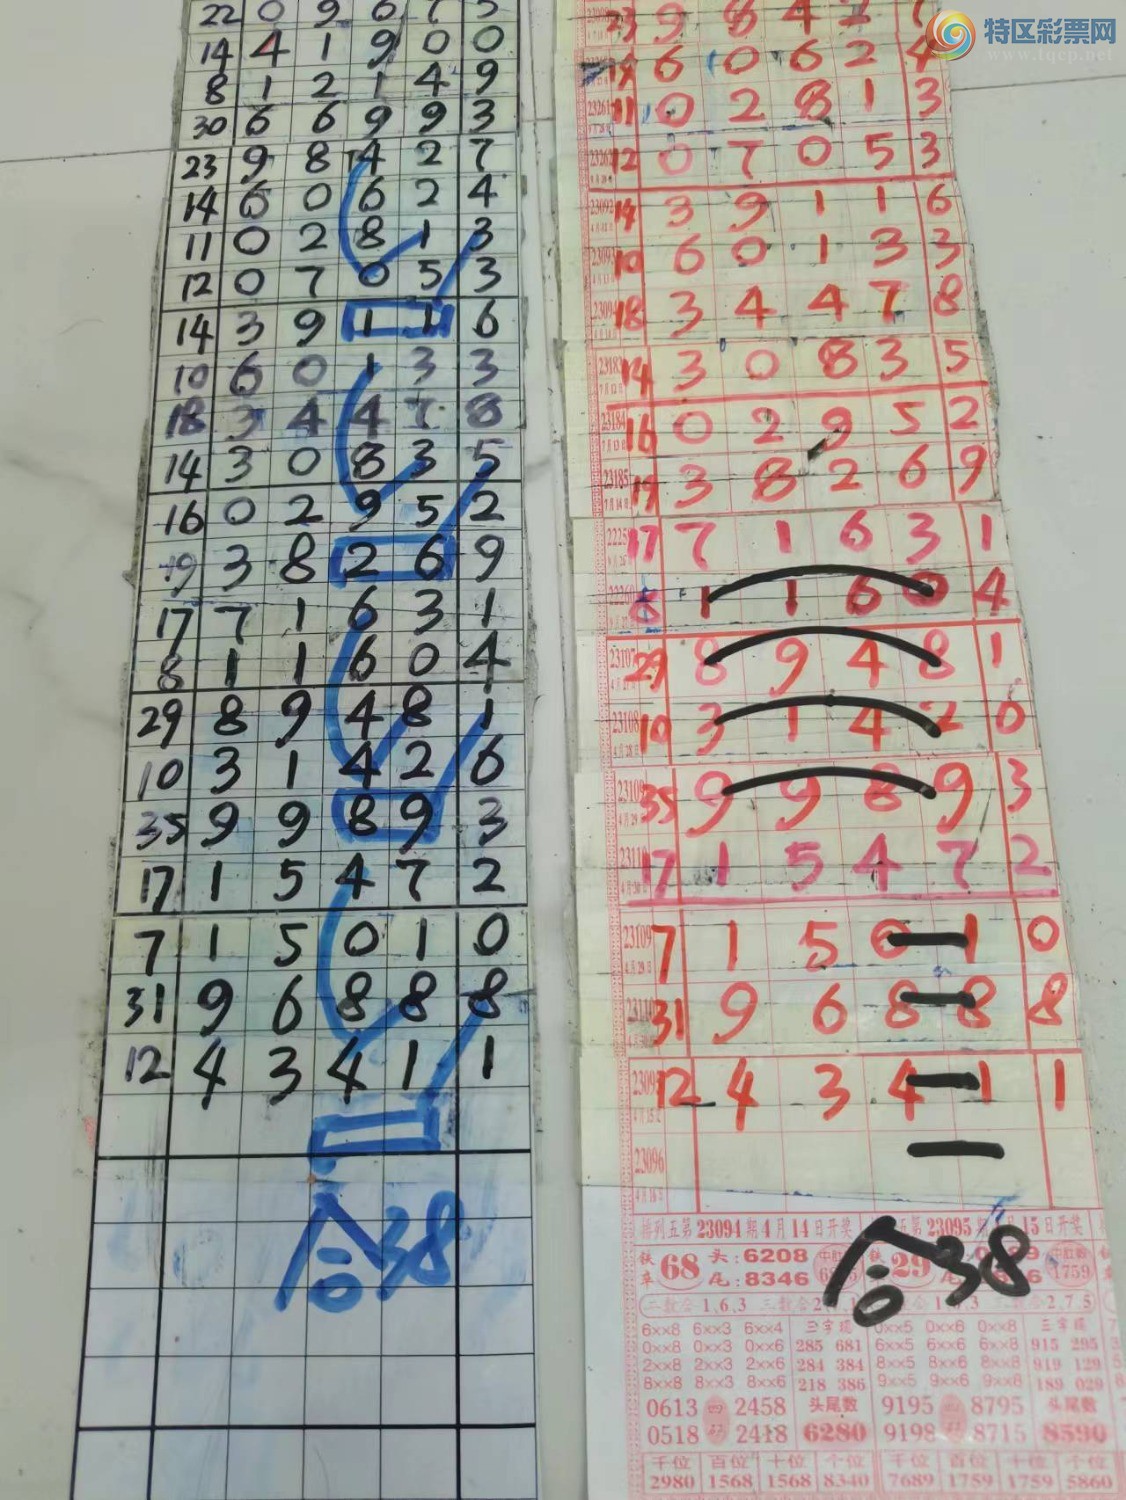 特区彩票网
www.tqcp.net
22 0 9 6 7 5
14 4 1 9 0 0
8 1 2 1 4 9
30 6 6 9 9 3
23 9 8 4 2 7
14 6 0 6 2 4
11 0 2 8 1 3
12 0 7 0 5 3
14 3 9 1 1 6
10 6 0 1 3 3
18 3 4 4 7 8
14 3 0 8 3 5
16 0 2 9 5 2
19 3 8 2 6 9
17 7 1 6 3 1
8 1 1 6 0 4
29 8 9 4 8 1
10 3 1 4 2 6
35 9 9 8 9 3
17 1 5 4 7 2
7 1 5 0 1 0
31 9 6 8 8 8
12 4 3 4 1 1
合38
23 9 8 4 2 7
14 6 0 6 2 4
23261 11 0 2 8 1 3
12 0 7 0 5 3
23092 14 3 9 1 1 6
23093 10 6 0 1 3 3
23094 18 3 4 4 7 8
23183 14 3 0 8 3 5
23184 16 0 2 9 5 2
23185 19 3 8 2 6 9
17 7 1 6 3 1
1 1 6 0 4
23107 29 8 9 4 8 1
23108 10 3 1 4 2 6
23109 35 9 9 8 9 3
23110 17 1 5 4 7 2
23109 7 1 5 0 1 0
23110 31 9 6 8 8 8
12 4 3 4 1 1
23096
4月16日
合38
排列五第23094期4月14日开奖
五第23095期 月15日开奖
铁卒 68 头:6208
尾:8346
29
1759
二数合1,6,3
三数合2,7,5
6xx8 6xx3 6xx4 三字现 0xx5 0xx6 0xx8 三字现
0xx8 0xx3 0xx6 285 681 6xx5 6xx6 6xx8 915 295
2xx8 2xx3 2xx6 284 384 8xx5 8xx6 8xx8 919 129
8xx8 8xx3 8xx6 218 386 9xx5 9xx6 9xx8 189 029
0613 四 2458 头尾数 9195 四 8795 头尾数
0518 码 2418 6280 9198 码 8715 8590
千位 百位 十位 个位 千位 百位 十位 个位
2980 1568 1568 8340 7689 1759 1759 5860